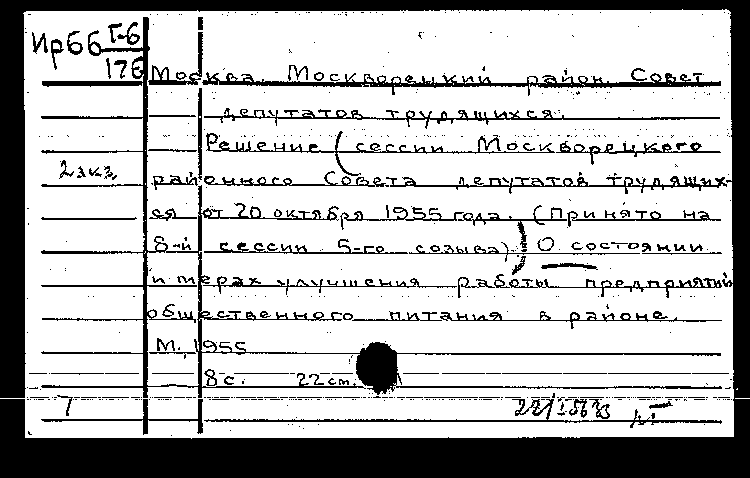 Ирбб Г-6
176
Москва. Москворецкий район. Совет
депутатов трудящихся.
Решение (сессии Москворецкого
2 экз.
районного Совета депутатов трудящих-
ся от 20 октября 1955 года. (Принято на
8-й сессии 5-го созыва)) О состоянии
и мерах улучшения работы предприятий
общественного питания в районе.
М., 1955
8 с. 22 см.